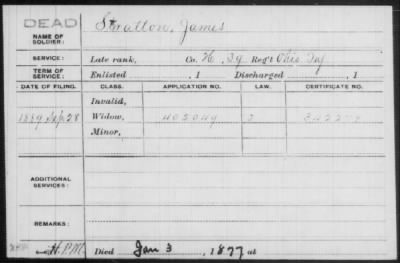 DEAD
NAME OF SOLDIER: Stratton, James
SERVICE: Late rank, Co. H, 29 Reg't Ohio Inf
TERM OF SERVICE: Enlisted , 1 Discharged , 1
DATE OF FILING. CLASS. APPLICATION NO. LAW. CERTIFICATE NO.
Invalid,
1889 Sep 28 Widow, 402049
Minor,
ADDITIONAL SERVICES:
REMARKS:
H.P.M. Died Jan 3, 1877 at